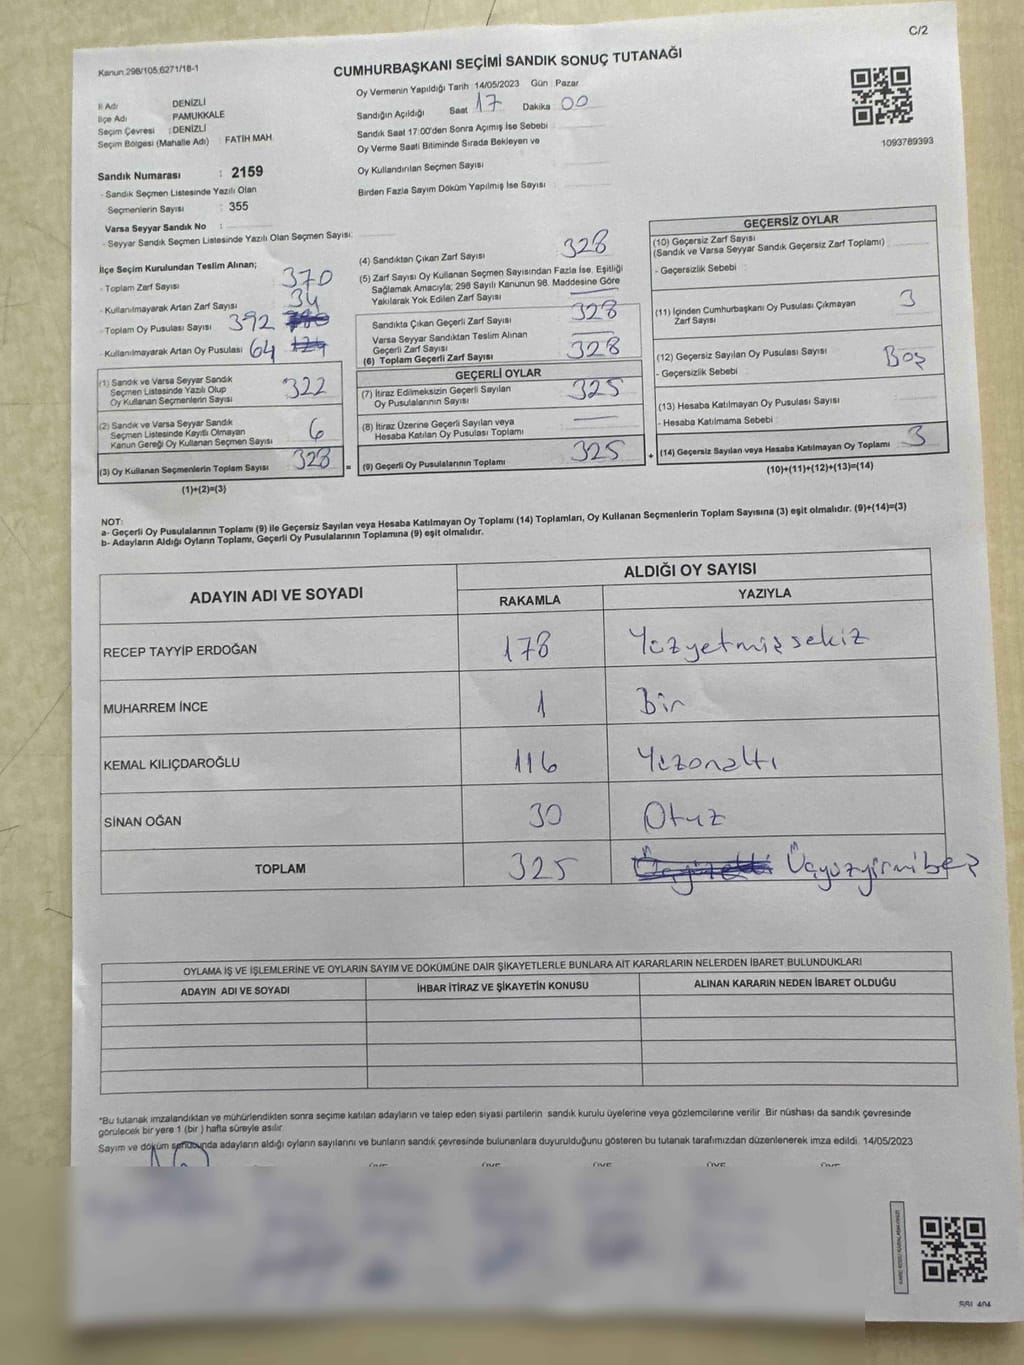 C/2
Kanun:298/105;6271/18-1
CUMHURBAŞKANI SEÇİMİ SANDIK SONUÇ TUTANAĞI
İl Adı : DENİZLİ
İlçe Adı : PAMUKKALE
Seçim Çevresi : DENİZLİ
Seçim Bölgesi (Mahalle Adı) : FATİH MAH.
Sandık Numarası : 2159
- Sandık Seçmen Listesinde Yazılı Olan
Seçmenlerin Sayısı : 355
Varsa Seyyar Sandık No :
- Seyyar Sandık Seçmen Listesinde Yazılı Olan Seçmen Sayısı:
Oy Vermenin Yapıldığı Tarih 14/05/2023 Gün Pazar
Sandığın Açıldığı Saat 17 Dakika 00
Sandık Saat 17:00'den Sonra Açımış İse Sebebi
Oy Verme Saati Bitiminde Sırada Bekleyen ve
Oy Kullandırılan Seçmen Sayısı
Birden Fazla Sayım Döküm Yapılmış İse Sayısı
1093789393
İlçe Seçim Kurulundan Teslim Alınan;
- Toplam Zarf Sayısı 370
- Kullanılmayarak Artan Zarf Sayısı 34
- Toplam Oy Pusulası Sayısı 392
- Kullanılmayarak Artan Oy Pusulası 64
(1) Sandık ve Varsa Seyyar Sandık
Seçmen Listesinde Yazılı Olup
Oy Kullanan Seçmenlerin Sayısı 322
(2) Sandık ve Varsa Seyyar Sandık
Seçmen Listesinde Kayıtlı Olmayan
Kanun Gereği Oy Kullanan Seçmen Sayısı 6
(3) Oy Kullanan Seçmenlerin Toplam Sayısı 328
(1)+(2)=(3)
(4) Sandıktan Çıkan Zarf Sayısı 328
(5) Zarf Sayısı Oy Kullanan Seçmen Sayısından Fazla İse, Eşitliği
Sağlamak Amacıyla; 298 Sayılı Kanunun 98. Maddesine Göre
Yakılarak Yok Edilen Zarf Sayısı
Sandıkta Çıkan Geçerli Zarf Sayısı 328
Varsa Seyyar Sandıktan Teslim Alınan
Geçerli Zarf Sayısı
(6) Toplam Geçerli Zarf Sayısı 328
GEÇERLİ OYLAR
(7) İtiraz Edilmeksizin Geçerli Sayılan
Oy Pusulalarının Sayısı 325
(8) İtiraz Üzerine Geçerli Sayılan veya
Hesaba Katılan Oy Pusulası Toplamı
= (9) Geçerli Oy Pusulalarının Toplamı 325
GEÇERSİZ OYLAR
(10) Geçersiz Zarf Sayısı
(Sandık ve Varsa Seyyar Sandık Geçersiz Zarf Toplamı)
- Geçersizlik Sebebi
(11) İçinden Cumhurbaşkanı Oy Pusulası Çıkmayan
Zarf Sayısı 3
(12) Geçersiz Sayılan Oy Pusulası Sayısı
- Geçersizlik Sebebi Boş
(13) Hesaba Katılmayan Oy Pusulası Sayısı
- Hesaba Katılmama Sebebi
+ (14) Geçersiz Sayılan veya Hesaba Katılmayan Oy Toplamı 3
(10)+(11)+(12)+(13)=(14)
NOT:
a- Geçerli Oy Pusulalarının Toplamı (9) ile Geçersiz Sayılan veya Hesaba Katılmayan Oy Toplamı (14) Toplamları, Oy Kullanan Seçmenlerin Toplam Sayısına (3) eşit olmalıdır. (9)+(14)=(3)
b- Adayların Aldığı Oyların Toplamı, Geçerli Oy Pusulalarının Toplamına (9) eşit olmalıdır.
ADAYIN ADI VE SOYADI
ALDIĞI OY SAYISI
RAKAMLA YAZIYLA
RECEP TAYYİP ERDOĞAN 178 Yüzyetmişsekiz
MUHARREM İNCE 1 Bir
KEMAL KILIÇDAROĞLU 116 Yüzonaltı
SİNAN OĞAN 30 Otuz
TOPLAM 325 Üçyüzyirmibeş
OYLAMA İŞ VE İŞLEMLERİNE VE OYLARIN SAYIM VE DÖKÜMÜNE DAİR ŞİKAYETLERLE BUNLARA AİT KARARLARIN NELERDEN İBARET BULUNDUKLARI
ADAYIN ADI VE SOYADI İHBAR İTİRAZ VE ŞİKAYETİN KONUSU ALINAN KARARIN NEDEN İBARET OLDUĞU
*Bu tutanak imzalandıktan ve mühürlendikten sonra seçime katılan adayların ve talep eden siyasi partilerin sandık kurulu üyelerine veya gözlemcilerine verilir. Bir nüshası da sandık çevresinde
görülecek bir yere 1 (bir) hafta süreyle asılır.
Sayım ve döküm sonucunda adayların aldığı oyların sayılarını ve bunların sandık çevresinde bulunanlara duyurulduğunu gösteren bu tutanak tarafımızdan düzenlenerek imza edildi. 14/05/2023